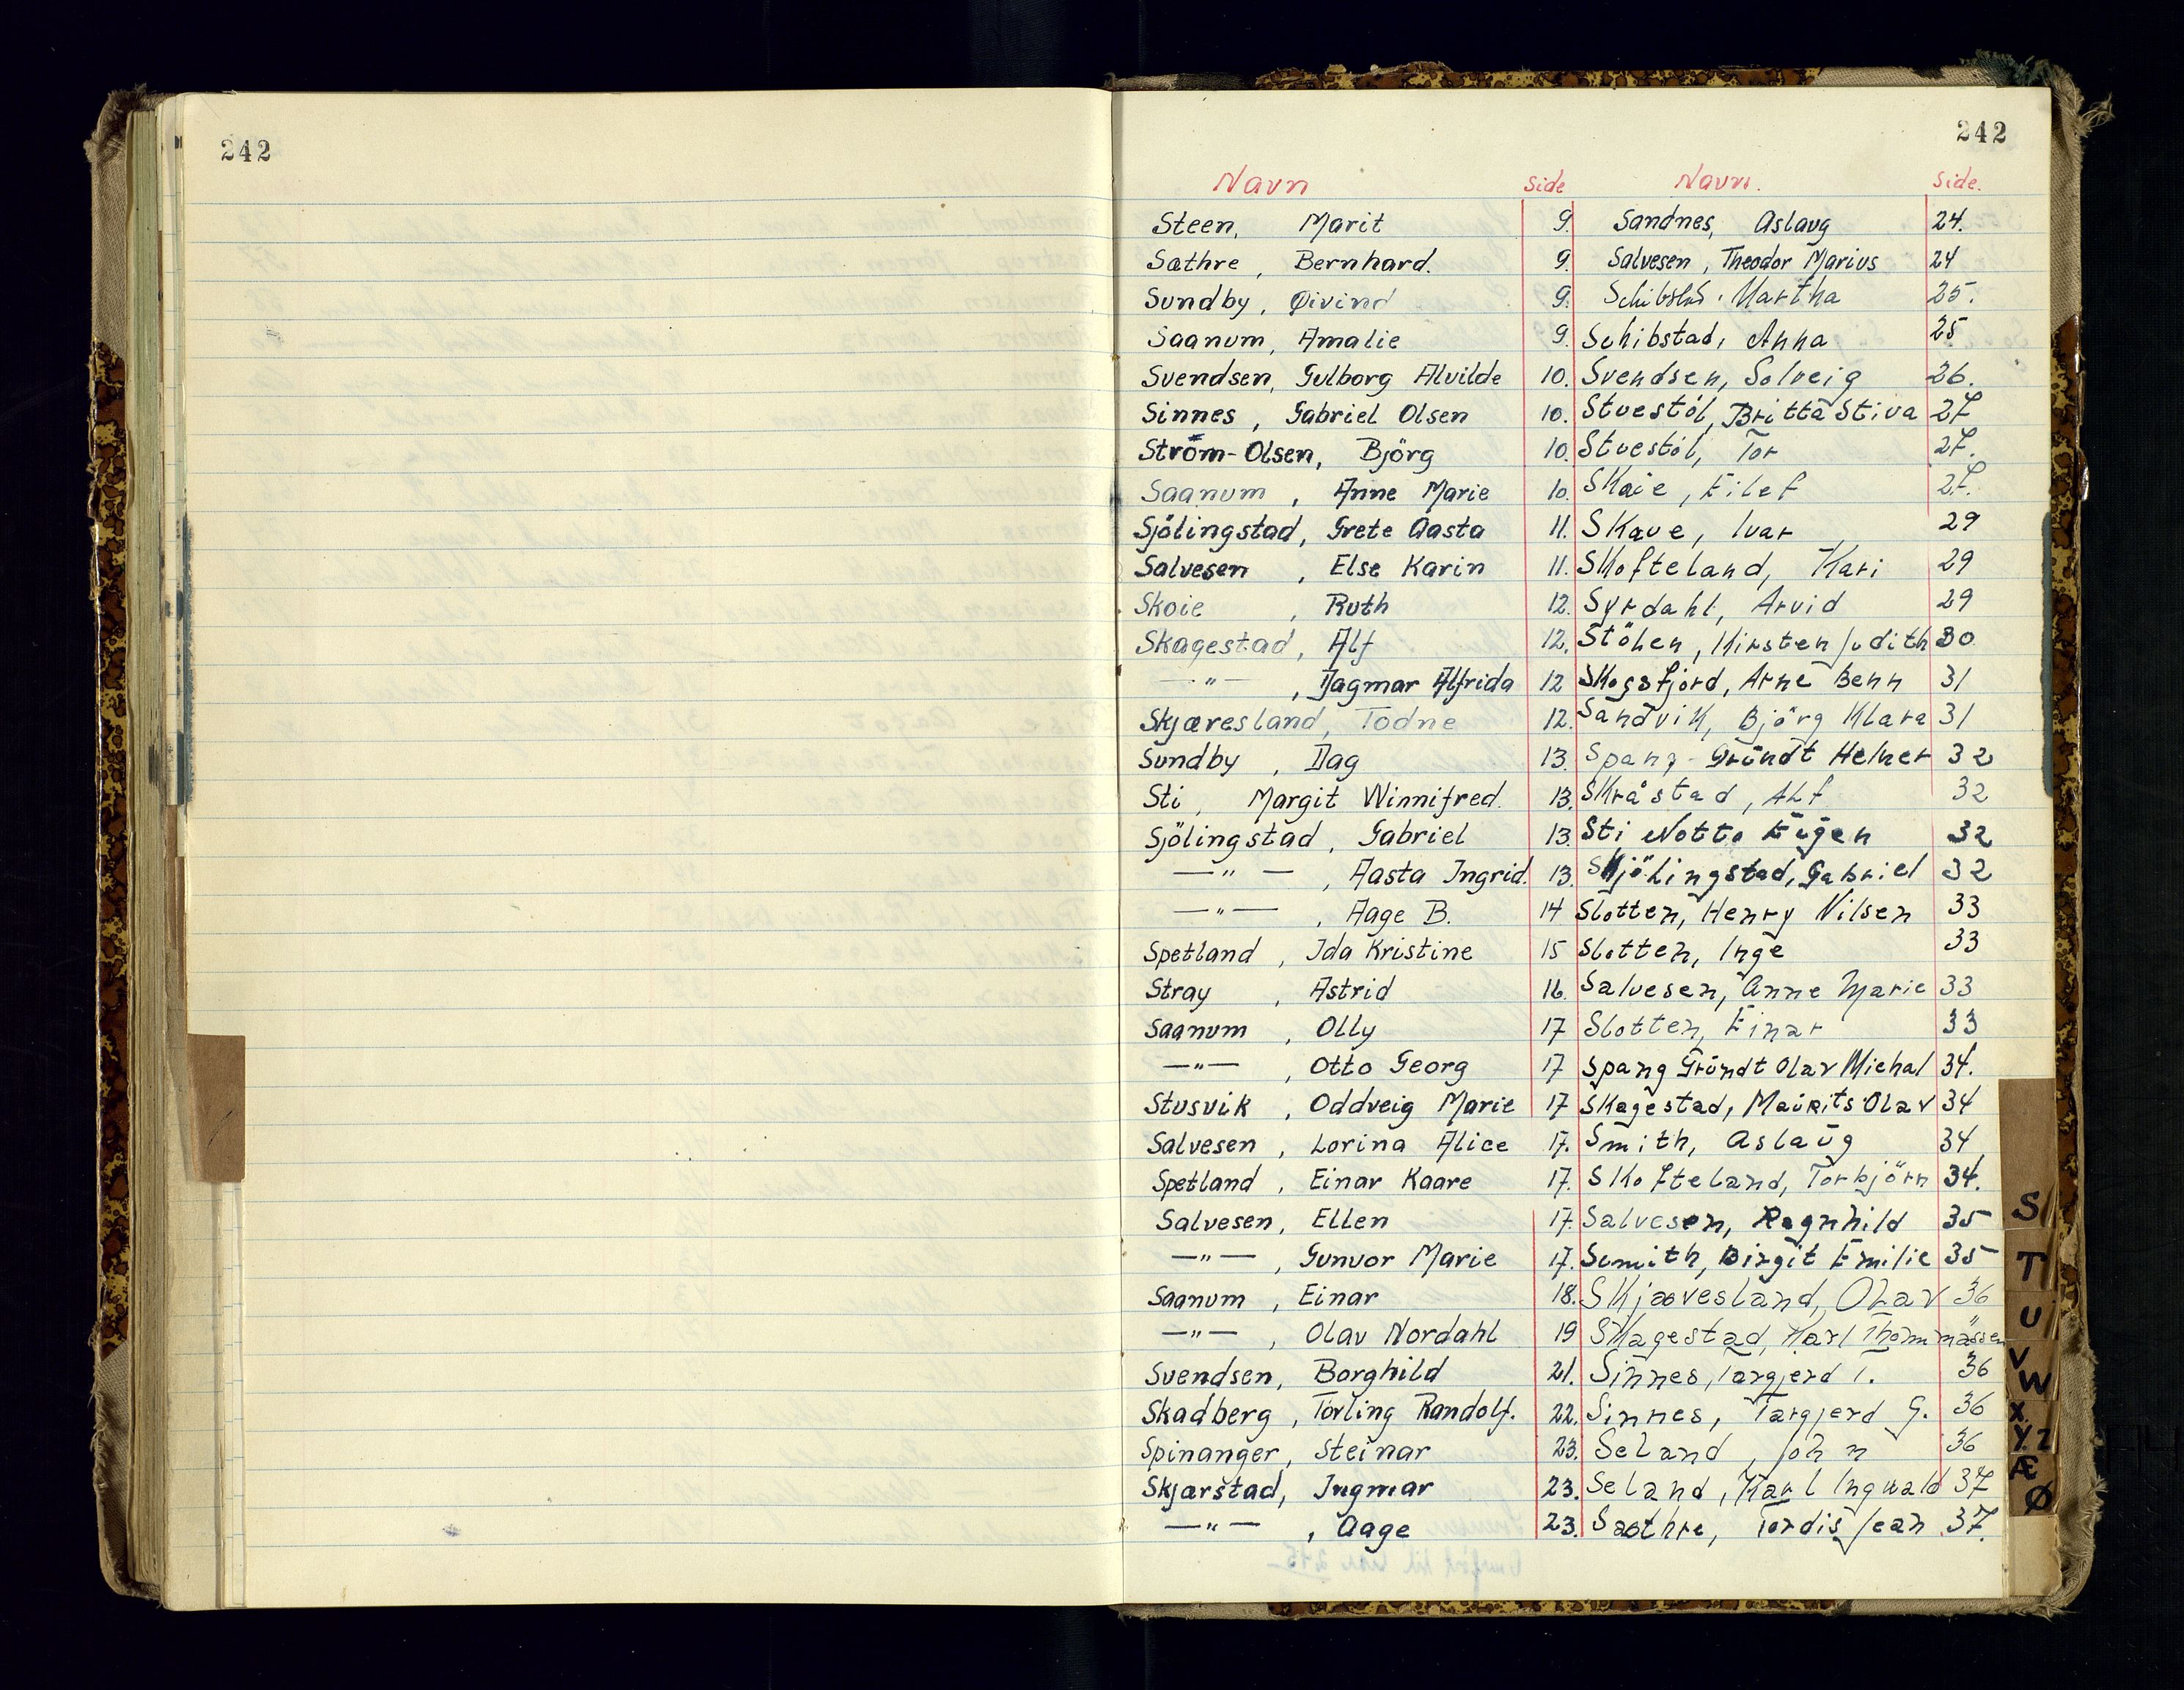 242
242
Navn Side Navn. Side.
Steen, Marit 9. Sandnes, Aslaug 24.
Sæthre, Bernhard. 9. Salvesen, Theodor Marius 24
Sundby, Øivind 9. Schibstad, Martha 25.
Saanum, Amalie 9. Schibstad, Anna 25
Svendsen, Gulborg Alvilde 10. Svendsen, Solveig 26.
Sinnes, Gabriel Olsen 10. Stuestöl, Britta Stiva 27
Ström-Olsen, Björg 10. Stuestöl, Tor 27.
Saanum, Anne Marie 10. Skaie, Eilef 27.
Sjölingstad, Grete Aasta 11. Skaue, Ivar 29
Salvesen, Else Karin 11. Skofteland, Kari 29
Skoie, Ruth 12. Syrdahl, Arvid 29
Skagestad, Alf 12. Stölen, Kirsten Judith 30
—"—, Dagmar Alfrida 12 Skogsfjord, Arne Benn 31
Skjæresland, Todne 12. Sandvik, Björg Klara 31
Sundby, Dag 13. Spang-Gründt Helner 32
Sti, Margit Winnifred. 13. Skråstad, Alf 32
Sjölingstad, Gabriel 13. Sti Notto Eigen 32
—"—, Aasta Ingrid. 13. Skjölingstad, Gabriel 32
—"—, Aage B. 14 Slotten, Henry Nilsen 33
Spetland, Ida Kristine 15 Slotten, Inge 33
Stray, Astrid 16. Salvesen, Anne Marie 33
Saanum, Olly 17 Slotten, Einar 33
—"—, Otto Georg 17 Spang Gründt Olav Michal 34.
Stusvik, Oddveig Marie 17 Skagestad, Maurits Olav 34
Salvesen, Lorina Alice 17. Smith, Aslaug 34
Spetland, Einar Kaare 17. Skofteland, Torbjörn 34.
Salvesen, Ellen 17. Salvesen, Ragnhild 35
—"—, Gunvor Marie 17. Smith, Birgit Emilie 35
Saanum, Einar 18. Skjævesland, Olav 36
—"—, Olav Nordahl 19 Skagestad, Karl Thommassen "
Svendsen, Borghild 21. Sinnes, Targjerd T. 36
Skadberg, Torling Randolf. 22. Sinnes, Targjerd G. 36
Spinanger, Steinar 23. Seland, John 36
Skjærstad, Ingmar 23. Seland, Karl Ingvald 37
—"—, Aage 23. Sæthre, Tordis Jean 37.
S
T
U
V
W
X
Y Z
Æ
Ø